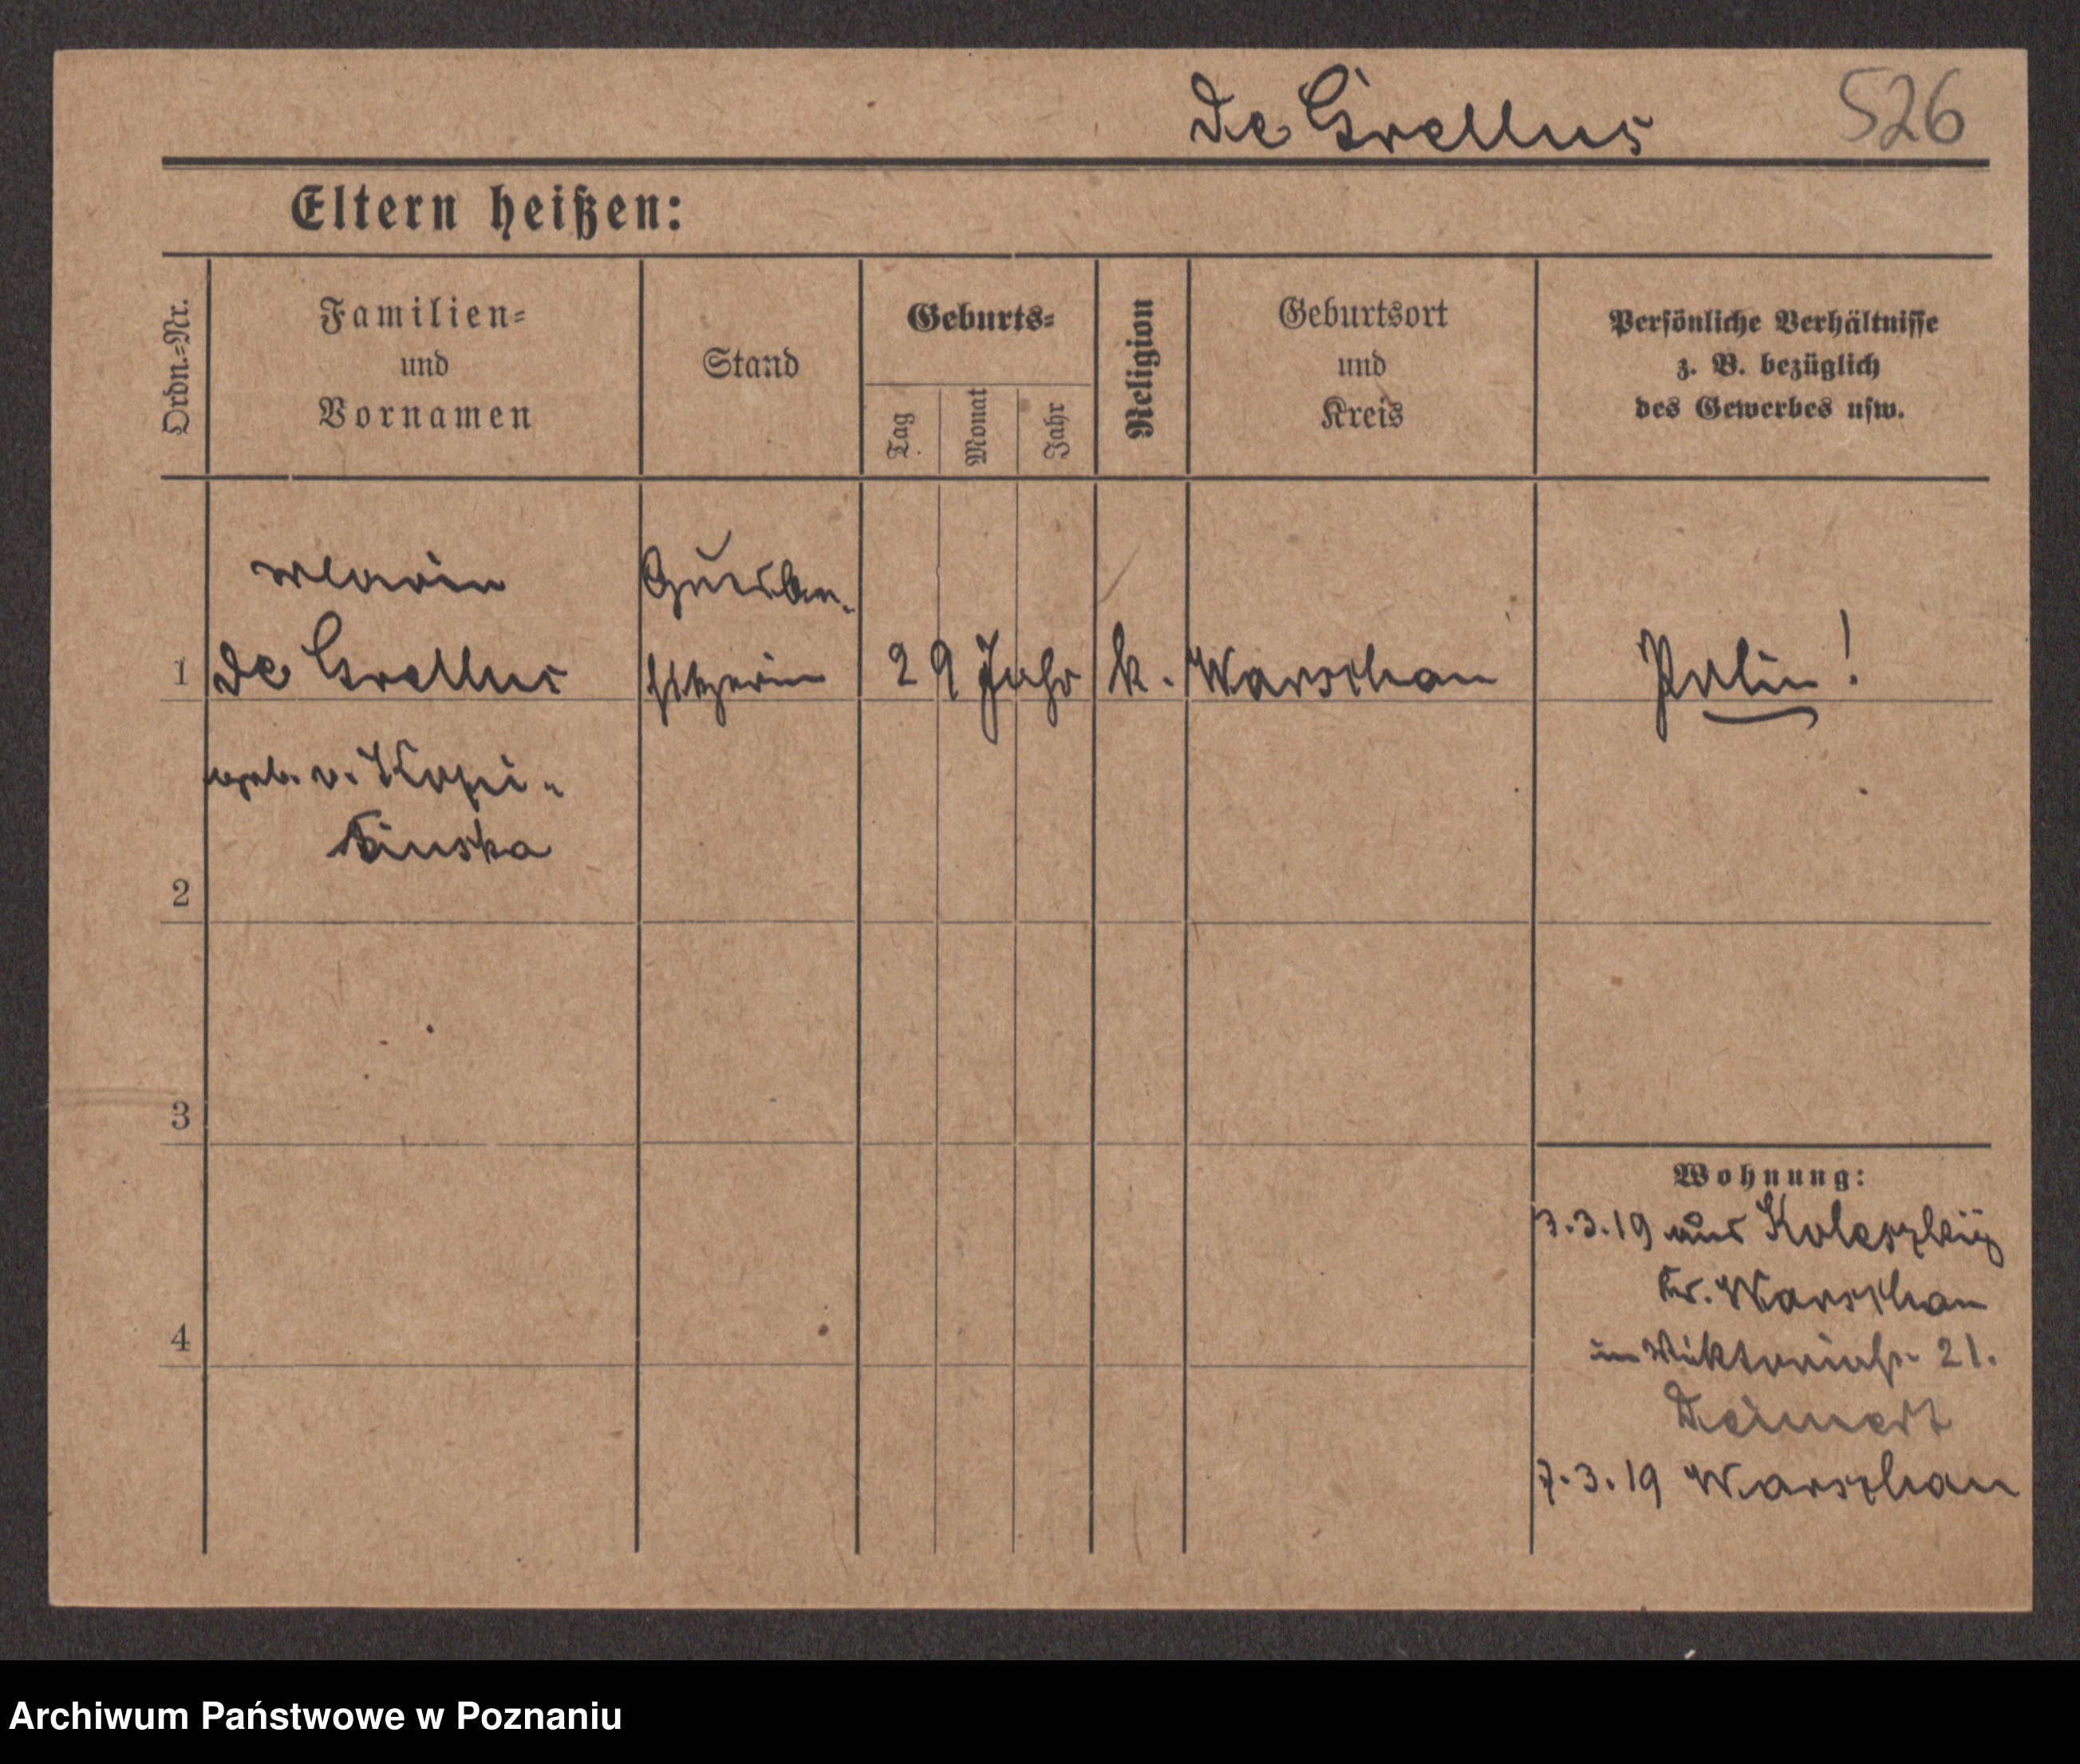 de Grellus 526
Eltern heißen:
Ordn.=Nr.
Familien=
und
Vornamen
Stand
Geburts=
Tag
Monat
Jahr
Religion
Geburtsort
und
Kreis
Persönliche Verhältnisse
z. B. bezüglich
des Gewerbes usw.
Maria
Gutsbe-
1 de Grellus sitzerin 29 Jahr k. Warschau Polin!
geb. v. Kopi-
2
3
Wohnung:
7.3.19 aus
Kr. Warschau
4
in Viktoriastr. 21.
7.3.19 Warschau
Archiwum Państwowe w Poznaniu